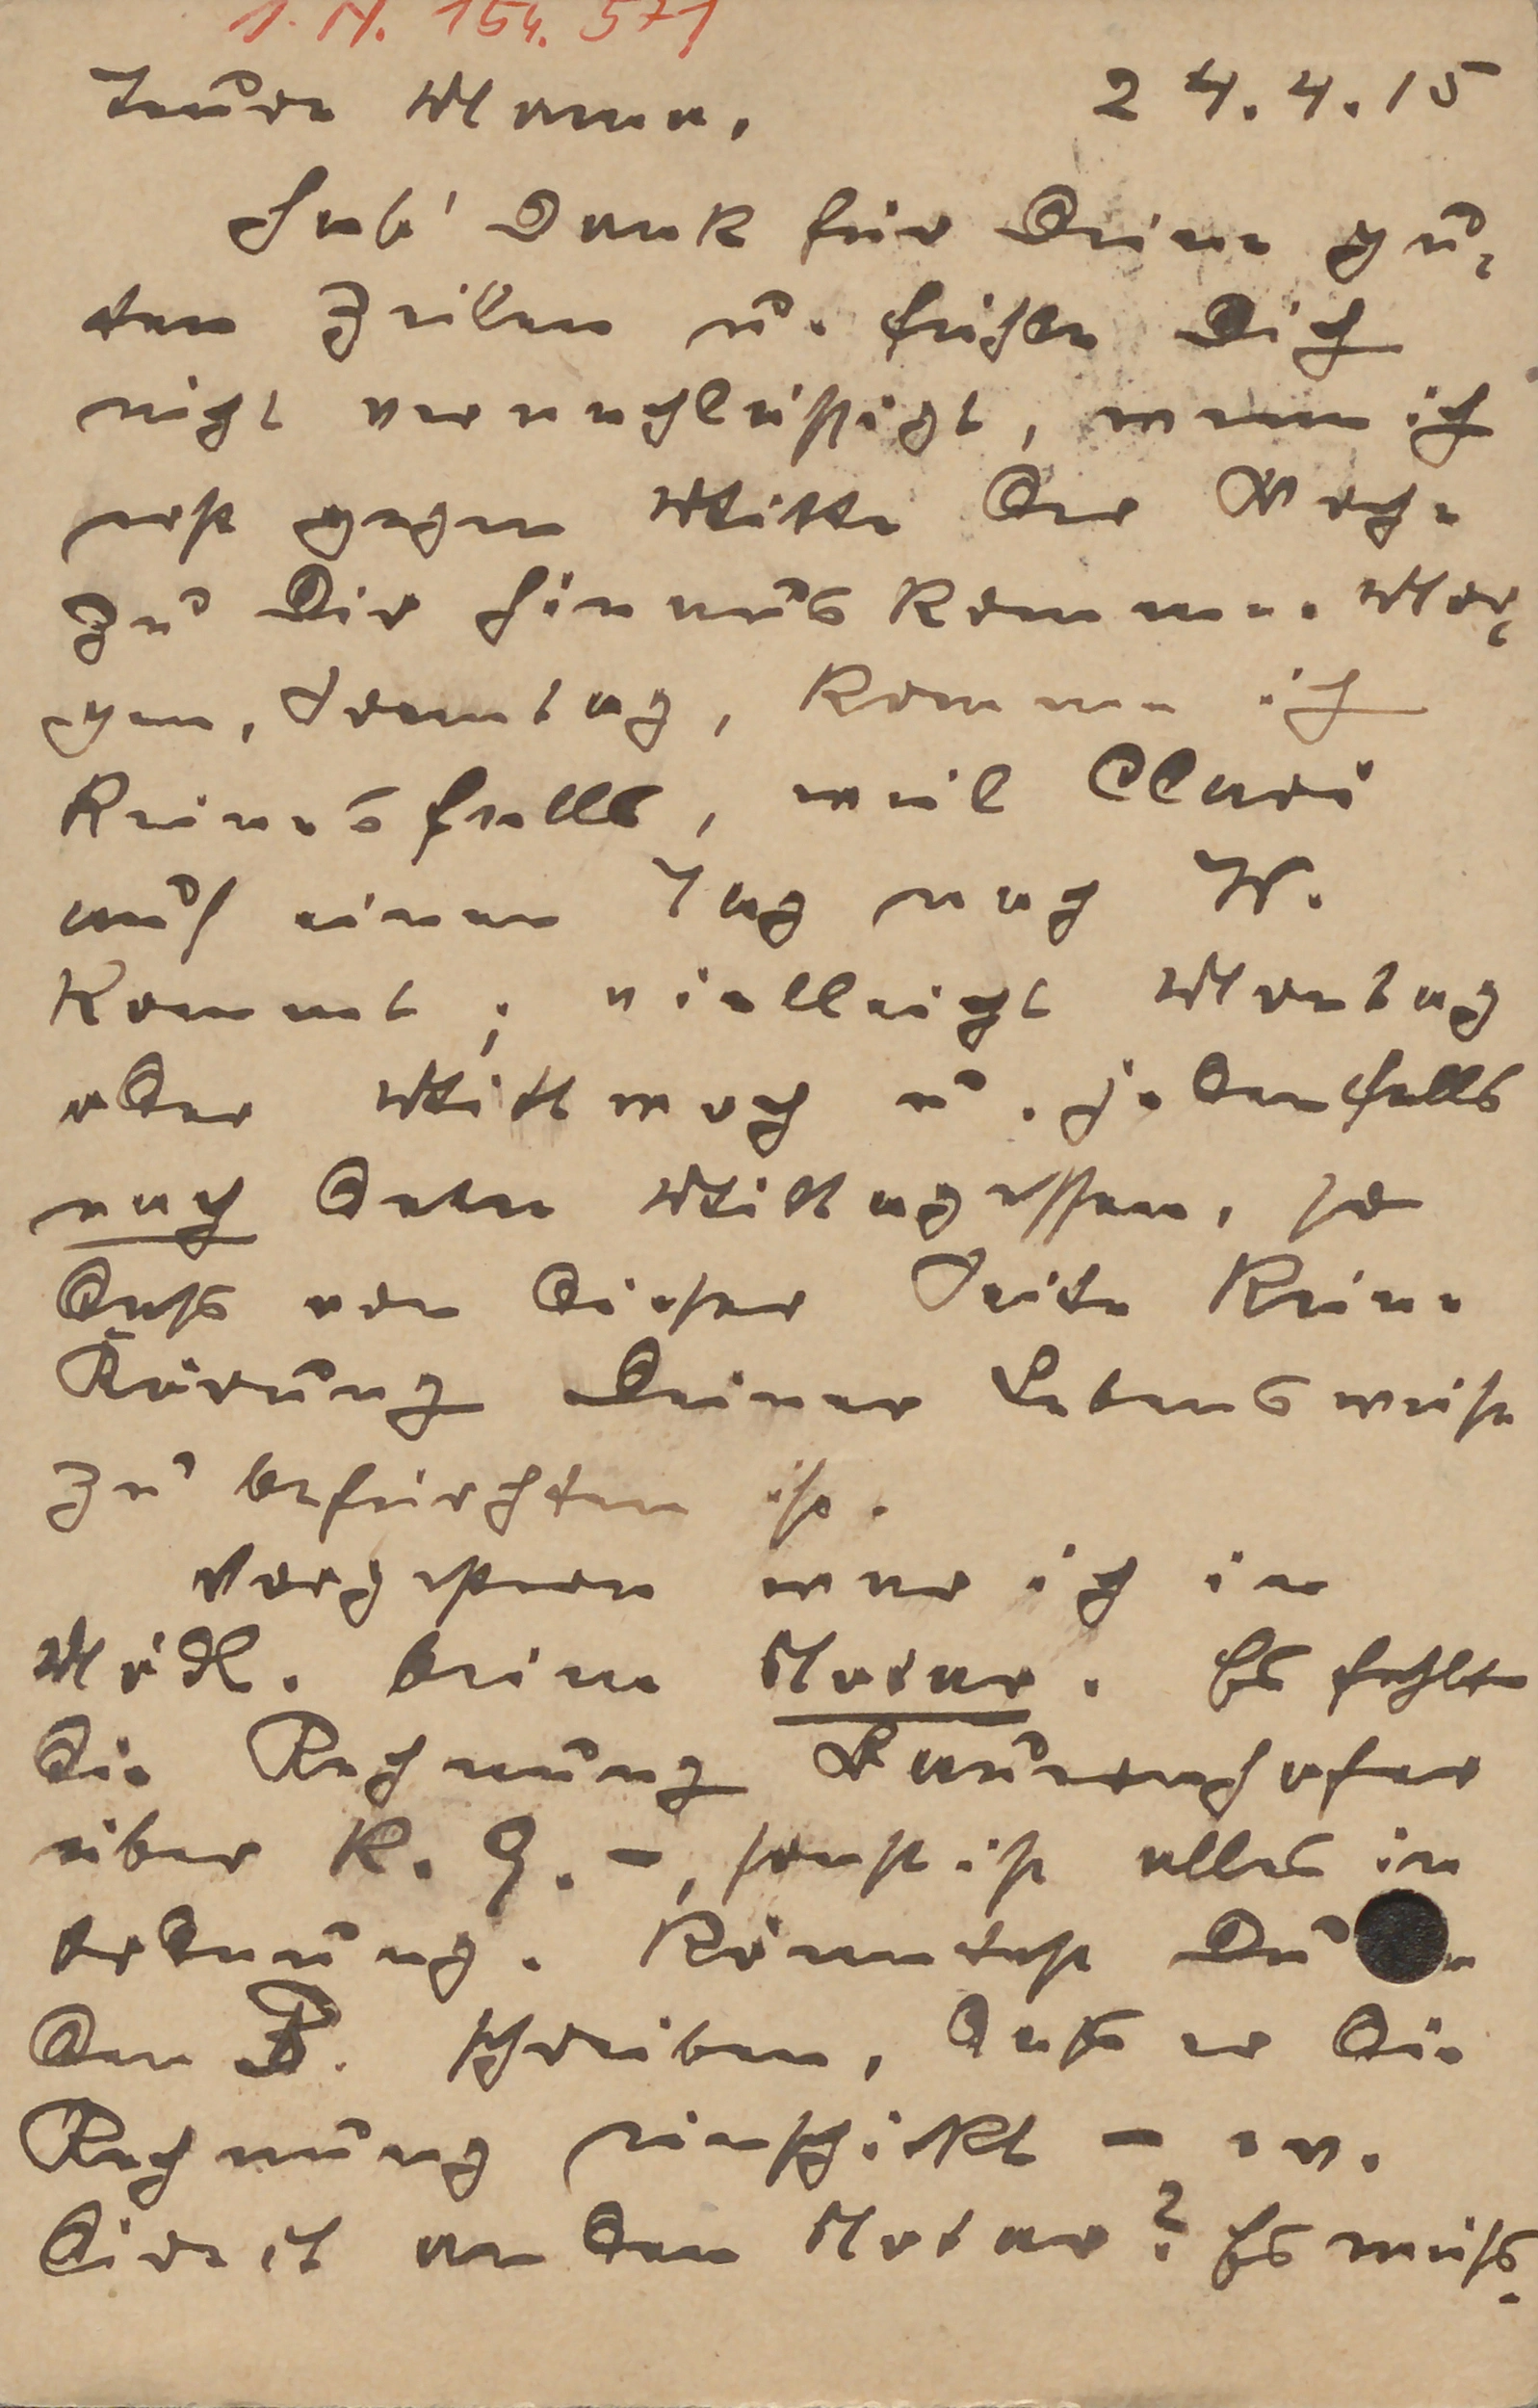 I. N. 154.571
Teure Mama, 24.4.15
Hab' Dank für Deine gu-
ten Zeilen u. fühle Dich
nicht vernachlässigt, wenn ich
erst gegen Mitte der Woche
zu Dir hinauskomme. Mor-
gen, Sonntag, komme ich
keinesfalls, weil Clari
auf einen Tag nach W.
kommt; vielleicht Montag
oder Mittwoch u. jedenfalls
nach dem Mittagessen, so
dass von dieser Seite keine
Störung Deiner Lebensweise
zu befürchten ist.
Vorgestern war ich in
Mödl. beim Notar. Es fehlte
die Rechnung
über K. 9.–, sonst ist alles in
Ordnung. Könntest Du
den B. schreiben, dass er die
Rechnung einschickt – ev.
direct an den Notar? Es muss